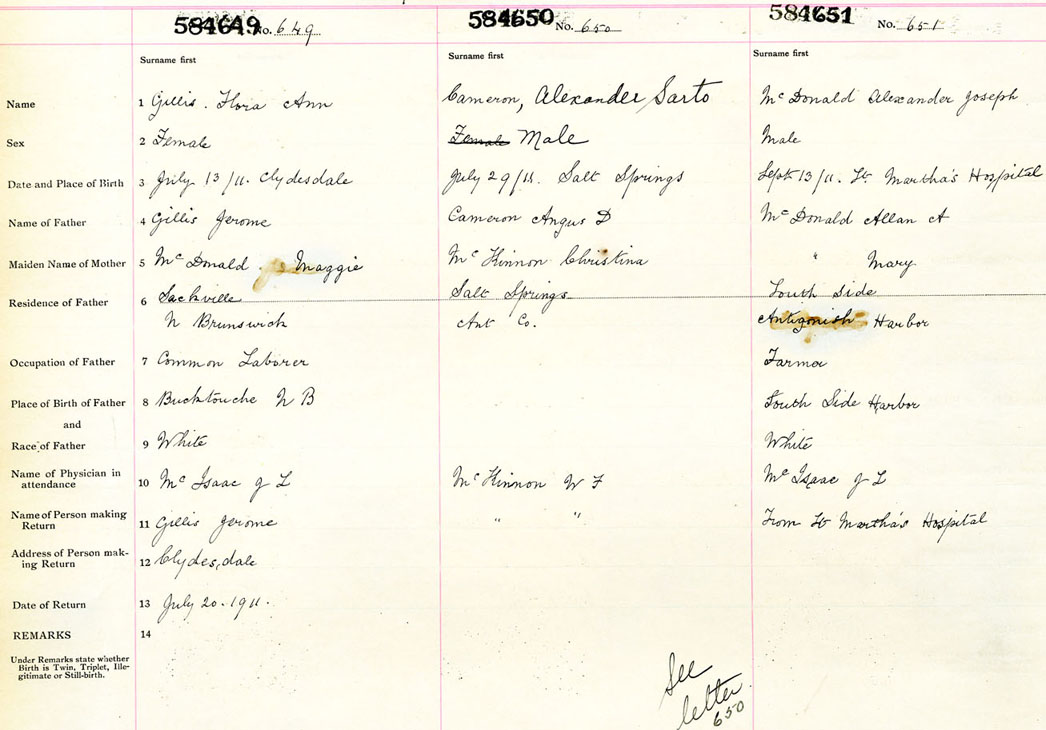 584649 No. 649 584650 No. 650 584651 No. 651
Surname first Surname first Surname first
Name 1 Gillis. Flora Ann Cameron, Alexander Sarto McDonald Alexander Joseph
Sex 2 Female Female Male Male
Date and Place of Birth 3 July 13/11. Clydesdale July 29/11. Salt Springs Sept 13/11. St. Martha's Hospital
Name of Father 4 Gillis Jerome Cameron Angus D McDonald Allan A
Maiden Name of Mother 5 McDonald Maggie McKinnon Christina " Mary
Residence of Father 6 Sackville Salt Springs South Side
N Brunswick Ant Co. Antigonish Harbor
Occupation of Father 7 Common Laborer Farmer
Place of Birth of Father 8 Bucktouche N B South Side Harbor
and
Race of Father 9 White White
Name of Physician in
attendance 10 McIsaac J L McKinnon W F McIsaac J L
Name of Person making
Return 11 Gillis Jerome " " From St Martha's Hospital
Address of Person mak-
ing Return 12 Clydesdale
Date of Return 13 July 20. 1911.
REMARKS 14
Under Remarks state whether
Birth is Twin, Triplet, Ille-
gitimate or Still-birth.
See
letter
650